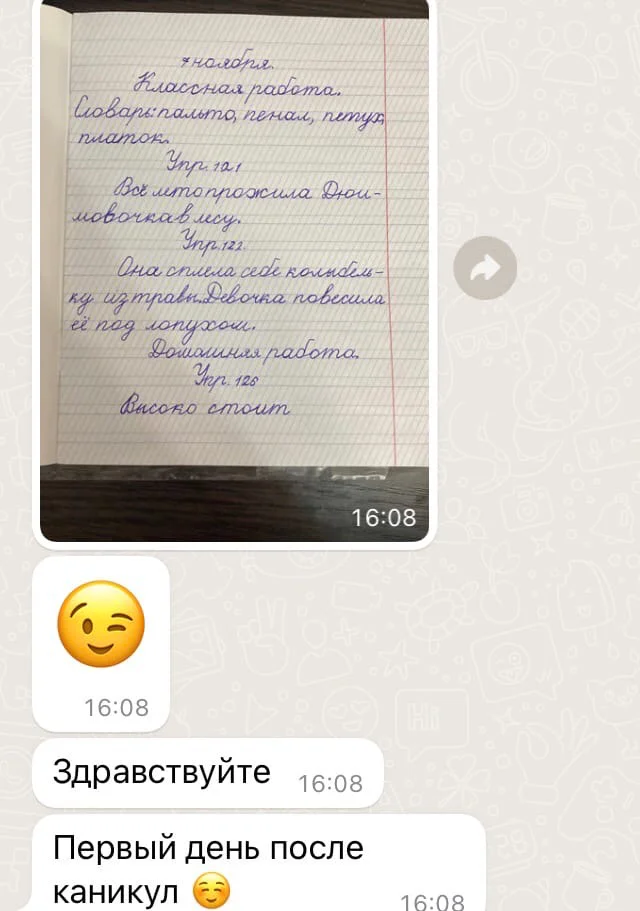 7 ноября.
Классная работа.
Словарь: пальто, пенал, петух,
платок.
Упр. 121
Всё лето прожила Дюй-
мовочка в лесу.
Упр. 122.
Она сплела себе колыбель-
ку из травы. Девочка повесила
её под лопухом.
Домашняя работа.
Упр. 125
Высоко стоит
16:08
16:08
Здравствуйте 16:08
Первый день после
каникул 16:08